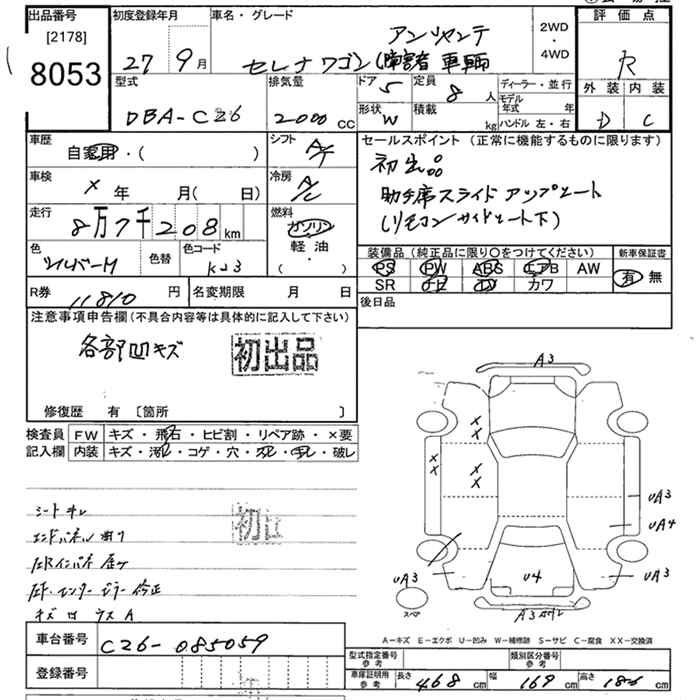 出品番号 初度登録年月 車名・グレード 評価点
[2178]
8053
27 9月
アンシャンテ
セレナワゴン (障害者車輌
2WD
・
4WD
R
外装 内装
D C
型式 排気量 ドア 5 定員 8人 ディーラー・並行
DBA-C26 2000cc 形状 W 積載 kg モデル年式 年
ハンドル 左・右
車歴 自家用・( )
シフト A/T
セールスポイント (正常に機能するものに限ります)
初出品
助手席スライドアップシート
(リモコン/サイドシート下)
車検 × 年 月( 日)
冷房 A/C
走行 8万7千208km
燃料 ガソリン
軽油
・
( )
色 シルバーM 色替 色コード K23
装備品 (純正品に限り○をつけてください) 新車保証書
PS PW ABS エアB AW 有 無
SR ナビ TV カワ
R券 11810円 名変期限 月 日
後日品
注意事項申告欄(不具合内容等は具体的に記入して下さい)
各部凹キズ
初出品
修復歴 有 〔箇所 〕
検査員 FW キズ・飛石・ヒビ割・リペア跡・×要
記入欄 内装 キズ・汚れ・コゲ・穴・スレ・キレ・破レ
シートキレ
エンドパネル曲り
キズ ロ ウス A
A3
UA3
UA4
UA3
UA3
U4
スペア
A-キズ E-エクボ U-凹み W-補修跡 S-サビ C-腐食 XX-交換済
車台番号 C26-085059
登録番号
型式指定番号 参考 類別区分番号 参考
車庫証明用 参考 長さ 468cm 幅 169cm 高さ 186cm